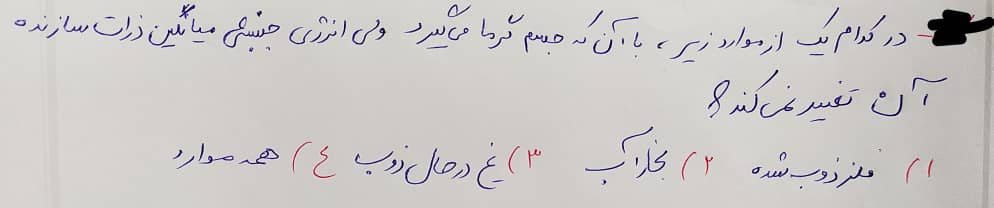 در کدام یک از موارد زیر، با آن که جسم گرما می‌گیرد ولی انرژی جنبشی میانگین ذرات سازنده
آن تغییر نمی کند؟
۱) فلز ذوب شده ۲) بخار آب ۳) یخ در حال ذوب ٤) همه موارد